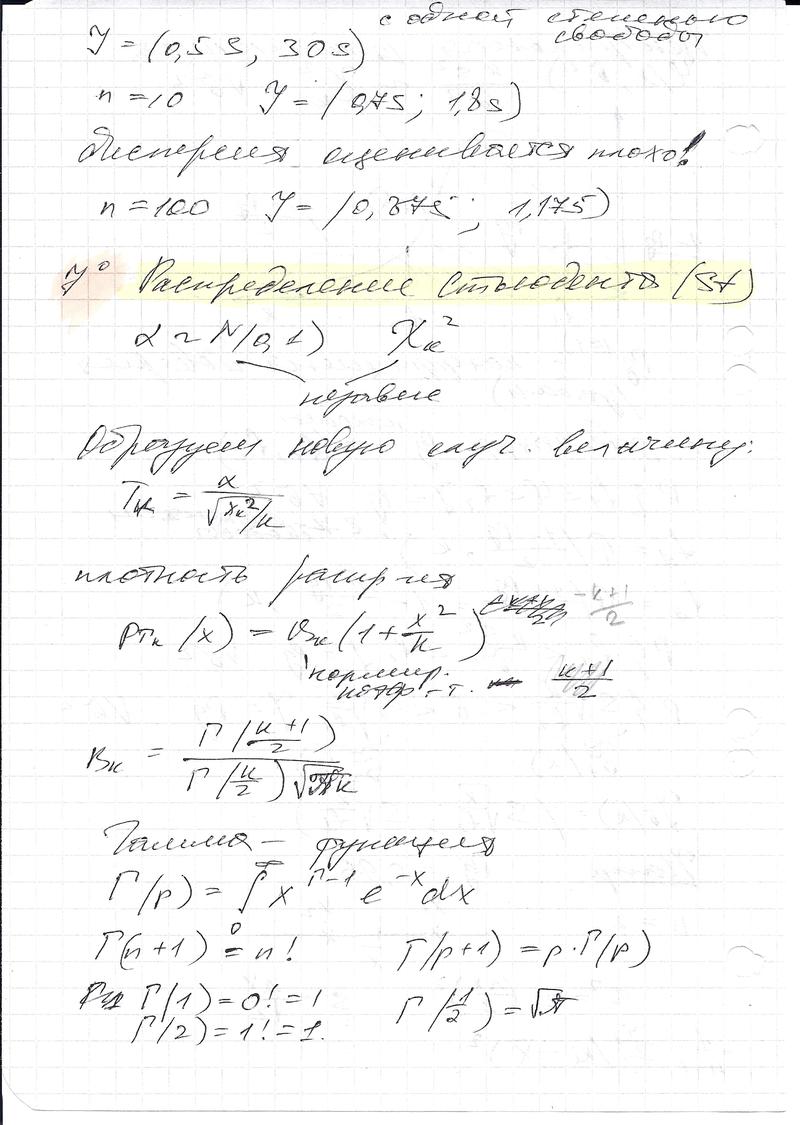 с одной степенью
свободы
J = (0,5 s, 30 s)
n = 10 J = (0,7s ; 1,8s)
Дисперсия оценивается плохо!
n = 100 J = (0,87s ; 1,17s)
7° Распределение Стьюдента (St)
α ~ N(0,1) χₖ²
независ
Образуем новую случ. величину:
Tₖ = α / √(χₖ²/k)
плотность распр-ия
p_Tₖ(x) = Bₖ(1 + x²/k)^(-(k+1)/2)
нормир.
коэф-т. (k+1)/2
Bₖ = Γ((k+1)/2) / (Γ(k/2) √(πk))
Гамма – функция
Γ(p) = ∫₀^∞ x^(p-1) e^(-x) dx
Γ(n+1) = n! Γ(p+1) = p·Γ(p)
Γ(1) = 0! = 1 Γ(1/2) = √π
Γ(2) = 1! = 1.